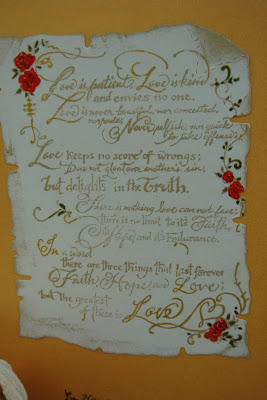 Love is patient, Love is kind
and envies no one.
Love is never boastful, nor conceited,
nor rude;
Never selfish, not quick
to take offense.
Love keeps no score of wrongs;
Does not gloat over another's sin;
but delights in the Truth.
There is nothing love can not face;
there is no limit to its Faith,
its Hope, and its Endurance.
In a word
there are three things that last forever
Faith, Hope, and Love;
but the greatest
of these is Love